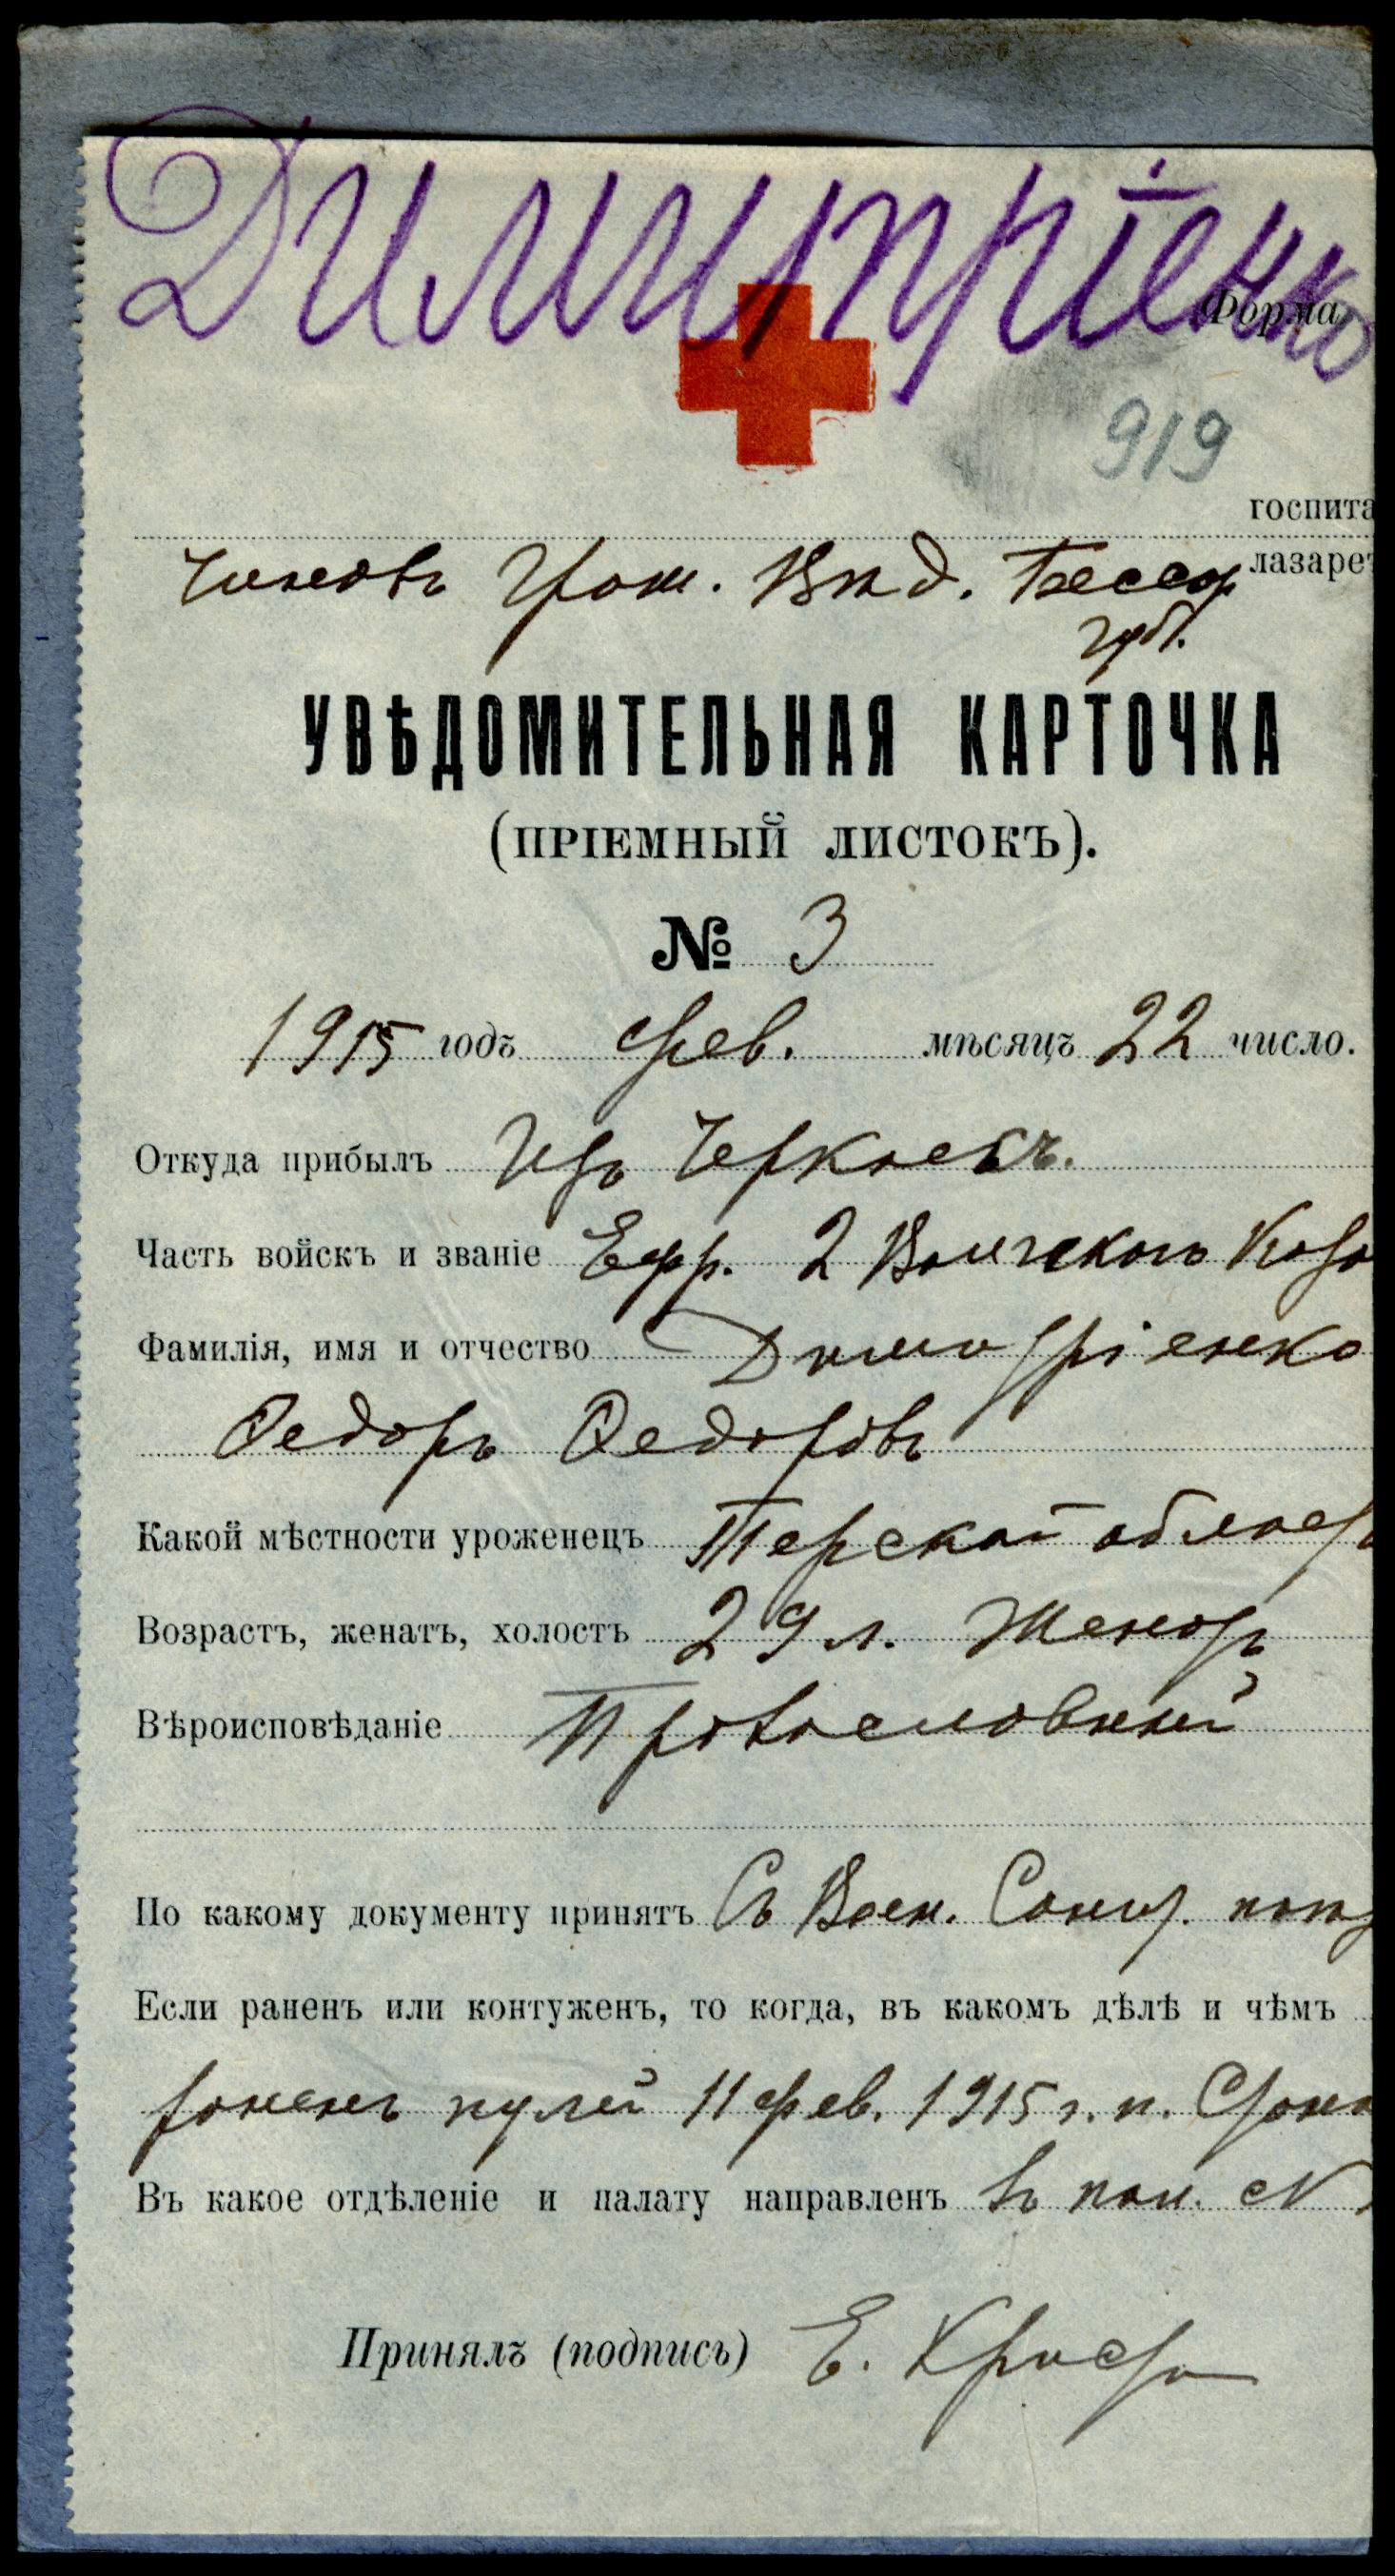 Димитріенко
Форма
919
госпита
лазарет
Чиновъ Граж. Вѣд. Бессар
губ.
УВѢДОМИТЕЛЬНАЯ КАРТОЧКА
(ПРІЕМНЫЙ ЛИСТОКЪ).
№ 3
1915 годъ фев. мѣсяцъ 22 число.
Откуда прибылъ Изъ Черкасъ.
Часть войскъ и званіе Ефр. 2 Волгскаго Каза
Фамилія, имя и отчество Димитріенко
Федоръ Федоровъ
Какой мѣстности уроженецъ Терской област
Возрастъ, женатъ, холостъ 29 л. Женатъ
Вѣроисповѣданіе Православный
По какому документу принятъ Съ Воен. Санит.
Если раненъ или контуженъ, то когда, въ какомъ дѣлѣ и чѣмъ
раненъ пулей 11 фев. 1915 г. п.
Въ какое отдѣленіе и палату направленъ въ пал. №
Принялъ (подпись) Е.